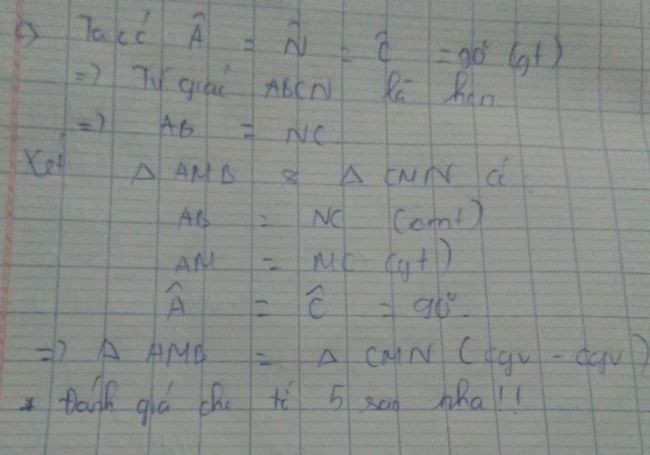 c) Ta có Â = N̂ = Ĉ = 90° (gt)
=> Tứ giác ABCN là hcn
=> AB = NC
Xét Δ AMB & Δ CMN có
AB = NC (cmt)
AM = MC (gt)
Â = Ĉ = 90°
=> Δ AMB = Δ CMN (cgv - cgv)
* Đánh giá cho tớ 5 sao nha!!